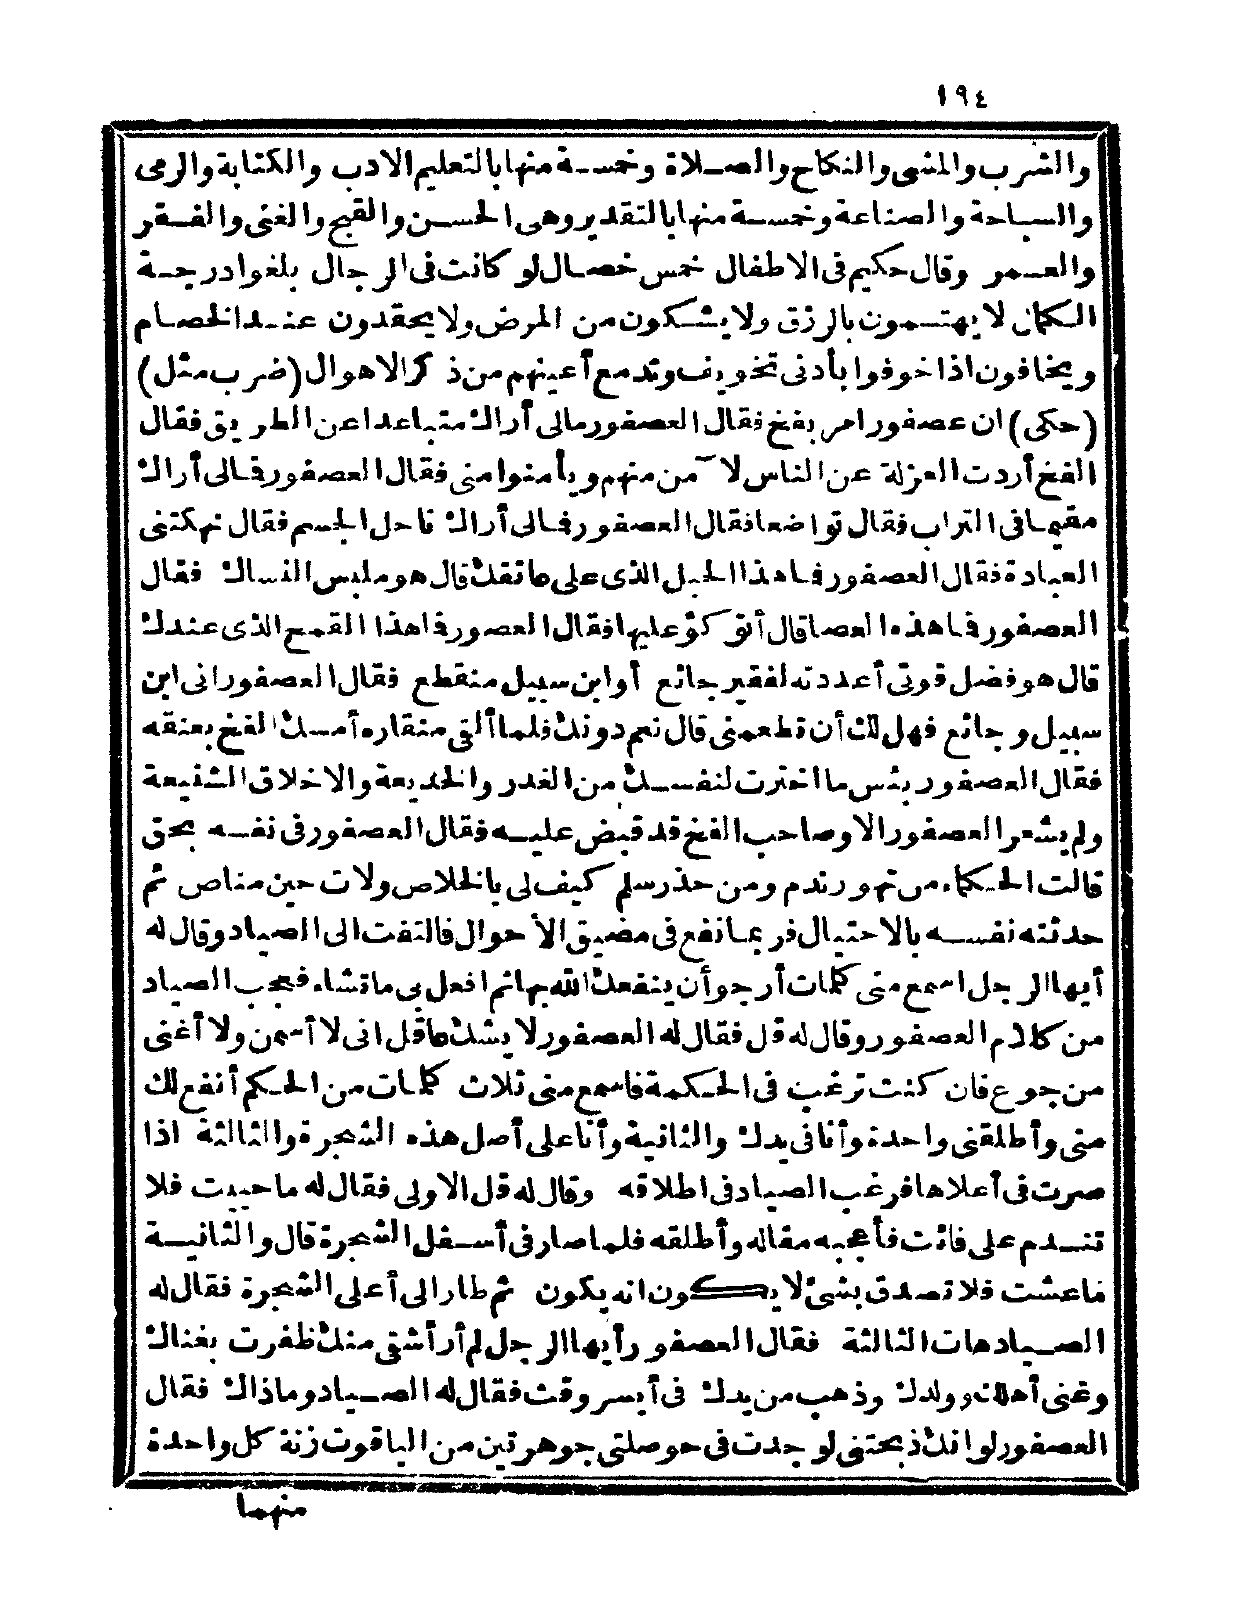 ١٩٤
والشرب والمشى والنكاح والصلاة وخمسة منها بالتعليم الادب والكتابة والرمى
والسباحة والصناعة وخمسة منها بالتقدير وهى الحسن والقبح والغنى والفقر
والعمر وقال حكيم فى الاطفال خمس خصال لو كانت فى الرجال بلغوا درجة
الكمال لا يهتمون بالرزق ولا يشكون من المرض ولا يحقدون عند الخصام
ويخافون اذا خوفوا بأدنى تخويف وتدمع أعينهم من ذكر الاهوال (ضرب مثل)
(حكى) ان عصفورا مر بفخ فقال العصفور مالى أراك متباعدا عن الطريق فقال
الفخ أردت العزلة عن الناس لآمن منهم ويأمنوا منى فقال العصفور فمالى أراك
مقيما فى التراب فقال تواضعا فقال العصفور فمالى أراك ناحل الجسم فقال نهكتنى
العبادة فقال العصفور فما هذا الحبل الذى على عاتقك قال هو ملبس النساك فقال
العصفور فما هذه العصا قال أتوكؤ عليها فقال العصفور فما هذا القمح الذى عندك
قال هو فضل قوتى أعددته لفقير جائع أو ابن سبيل منقطع فقال العصفور انى ابن
سبيل وجائع فهل لك أن تطعمنى قال نعم دونك فلما ألقى منقاره أمسك الفخ بعنقه
فقال العصفور بئس ما اخترت لنفسك من الغدر والخديعة والاخلاق الشنيعة
ولم يشعر العصفور الا وصاحب الفخ قد قبض عليه فقال العصفور فى نفسه بحق
قالت الحكماء من تهور ندم ومن حذر سلم كيف لى بالخلاص ولات حين مناص ثم
حدثته نفسه بالاحتيال فربما نفع فى مضيق الأحوال فالتفت الى الصياد وقال له
أيها الرجل اسمع منى كلمات أرجو أن ينفعك الله بها ثم افعل بى ما تشاء فعجب الصياد
من كلام العصفور وقال له قل فقال له العصفور لا يشك عاقل انى لا أسمن ولا أغنى
من جوع فان كنت ترغب فى الحكمة فاسمع منى ثلاث كلمات من الحكم أنفع لك
منى وأطلقنى واحدة وأنا فى يدك والثانية وأنا على أصل هذه الشجرة والثالثة اذا
صرت فى أعلاها فرغب الصياد فى اطلاقه وقال له قل الاولى فقال له ما حييت فلا
تندم على فائت فأعجبه مقاله وأطلقه فلما صار فى أسفل الشجرة قال والثانية
ما عشت فلا تصدق بشئ لا يكون انه يكون ثم طار الى أعلى الشجرة فقال له
الصياد هات الثالثة فقال العصفور أيها الرجل لم أر أشقى منك ظفرت بغناك
وغنى أهلك وولدك وذهب من يدك فى أيسر وقت فقال له الصياد وماذاك فقال
العصفور لو انك ذبحتنى لوجدت فى حوصلتى جوهرتين من الياقوت زنة كل واحدة
منهما